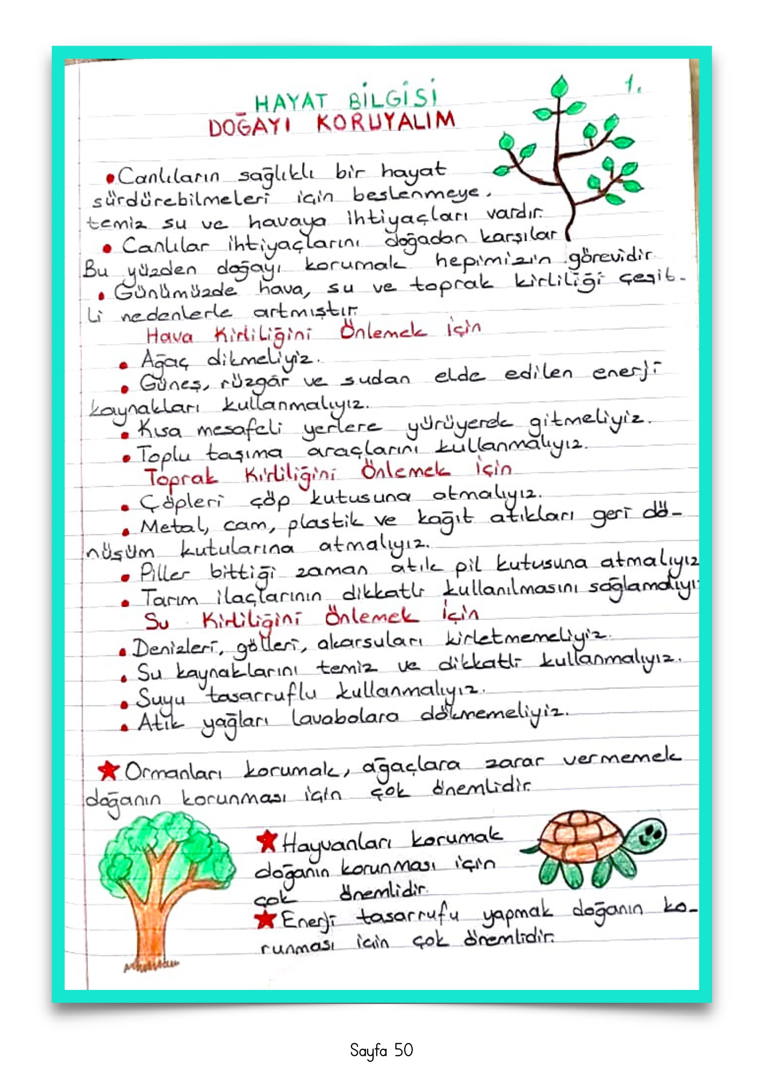 1.
HAYAT BİLGİSİ
DOĞAYI KORUYALIM
• Canlıların sağlıklı bir hayat
sürdürebilmeleri için beslenmeye,
temiz su ve havaya ihtiyaçları vardır.
• Canlılar ihtiyaçlarını doğadan karşılar
Bu yüzden doğayı korumak hepimizin görevidir
• Günümüzde hava, su ve toprak kirliliği çeşit-
li nedenlerle artmıştır.
Hava Kirliliğini Önlemek İçin
• Ağaç dikmeliyiz.
• Güneş, rüzgâr ve sudan elde edilen enerji
kaynakları kullanmalıyız.
• Kısa mesafeli yerlere yürüyerek gitmeliyiz.
• Toplu taşıma araçlarını kullanmalıyız.
Toprak Kirliliğini Önlemek İçin
• Çöpleri çöp kutusuna atmalıyız.
• Metal, cam, plastik ve kağıt atıkları geri dö-
nüşüm kutularına atmalıyız.
• Piller bittiği zaman atık pil kutusuna atmalıyız
• Tarım ilaçlarının dikkatli kullanılmasını sağlamalıyı
Su Kirliliğini Önlemek İçin
• Denizleri, gölleri, akarsuları kirletmemeliyiz.
• Su kaynaklarını temiz ve dikkatli kullanmalıyız.
• Suyu tasarruflu kullanmalıyız.
• Atık yağları lavabolara dökmemeliyiz.
★ Ormanları korumak, ağaçlara zarar vermemek
doğanın korunması için çok önemlidir
★ Hayvanları korumak
doğanın korunması için
çok önemlidir.
★ Enerji tasarrufu yapmak doğanın ko-
runması için çok önemlidir.
Sayfa 50